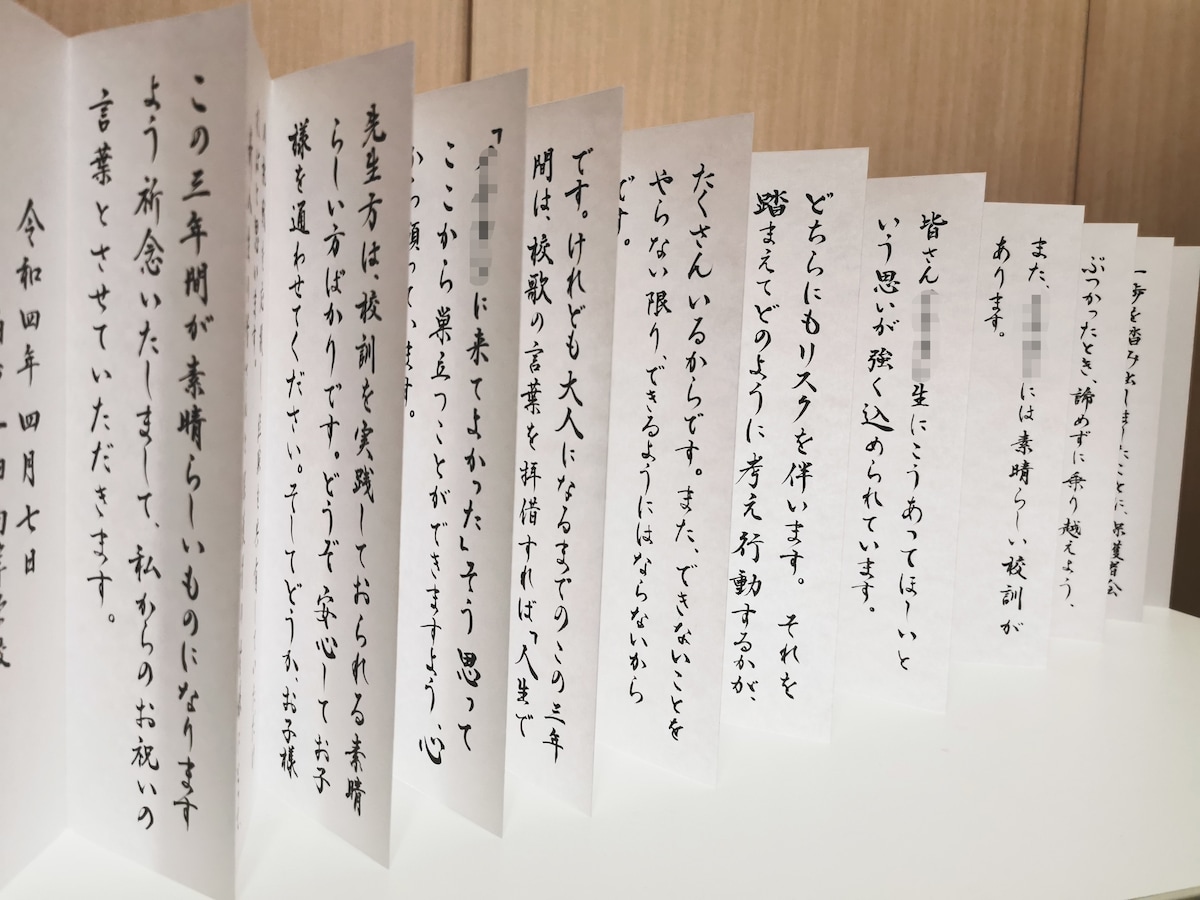 一歩を踏み出しましたことに、保護者会
ぶつかったとき、諦めずに乗り越えよう、
また、
には素晴らしい校訓が
あります。
皆さん
生にこうあってほしいと
いう思いが強く込められています。
どちらにもリスクを伴います。それを
踏まえてどのように考え行動するかが、
たくさんいるからです。また、できないことを
やらない限り、できるようにはならないから
です。
です。けれども大人になるまでのこの三年
間は、校歌の言葉を拝借すれば「人生で
「
に来てよかった」そう思って
ここから巣立つことができますよう、心
から願っています。
先生方は、校訓を実践しておられる素晴
らしい方ばかりです。どうぞ安心してお子
様を通わせてください。そしてどうか、お子様
この三年間が素晴らしいものになります
よう祈念いたしまして、私からのお祝いの
言葉とさせていただきます。
令和四年四月七日